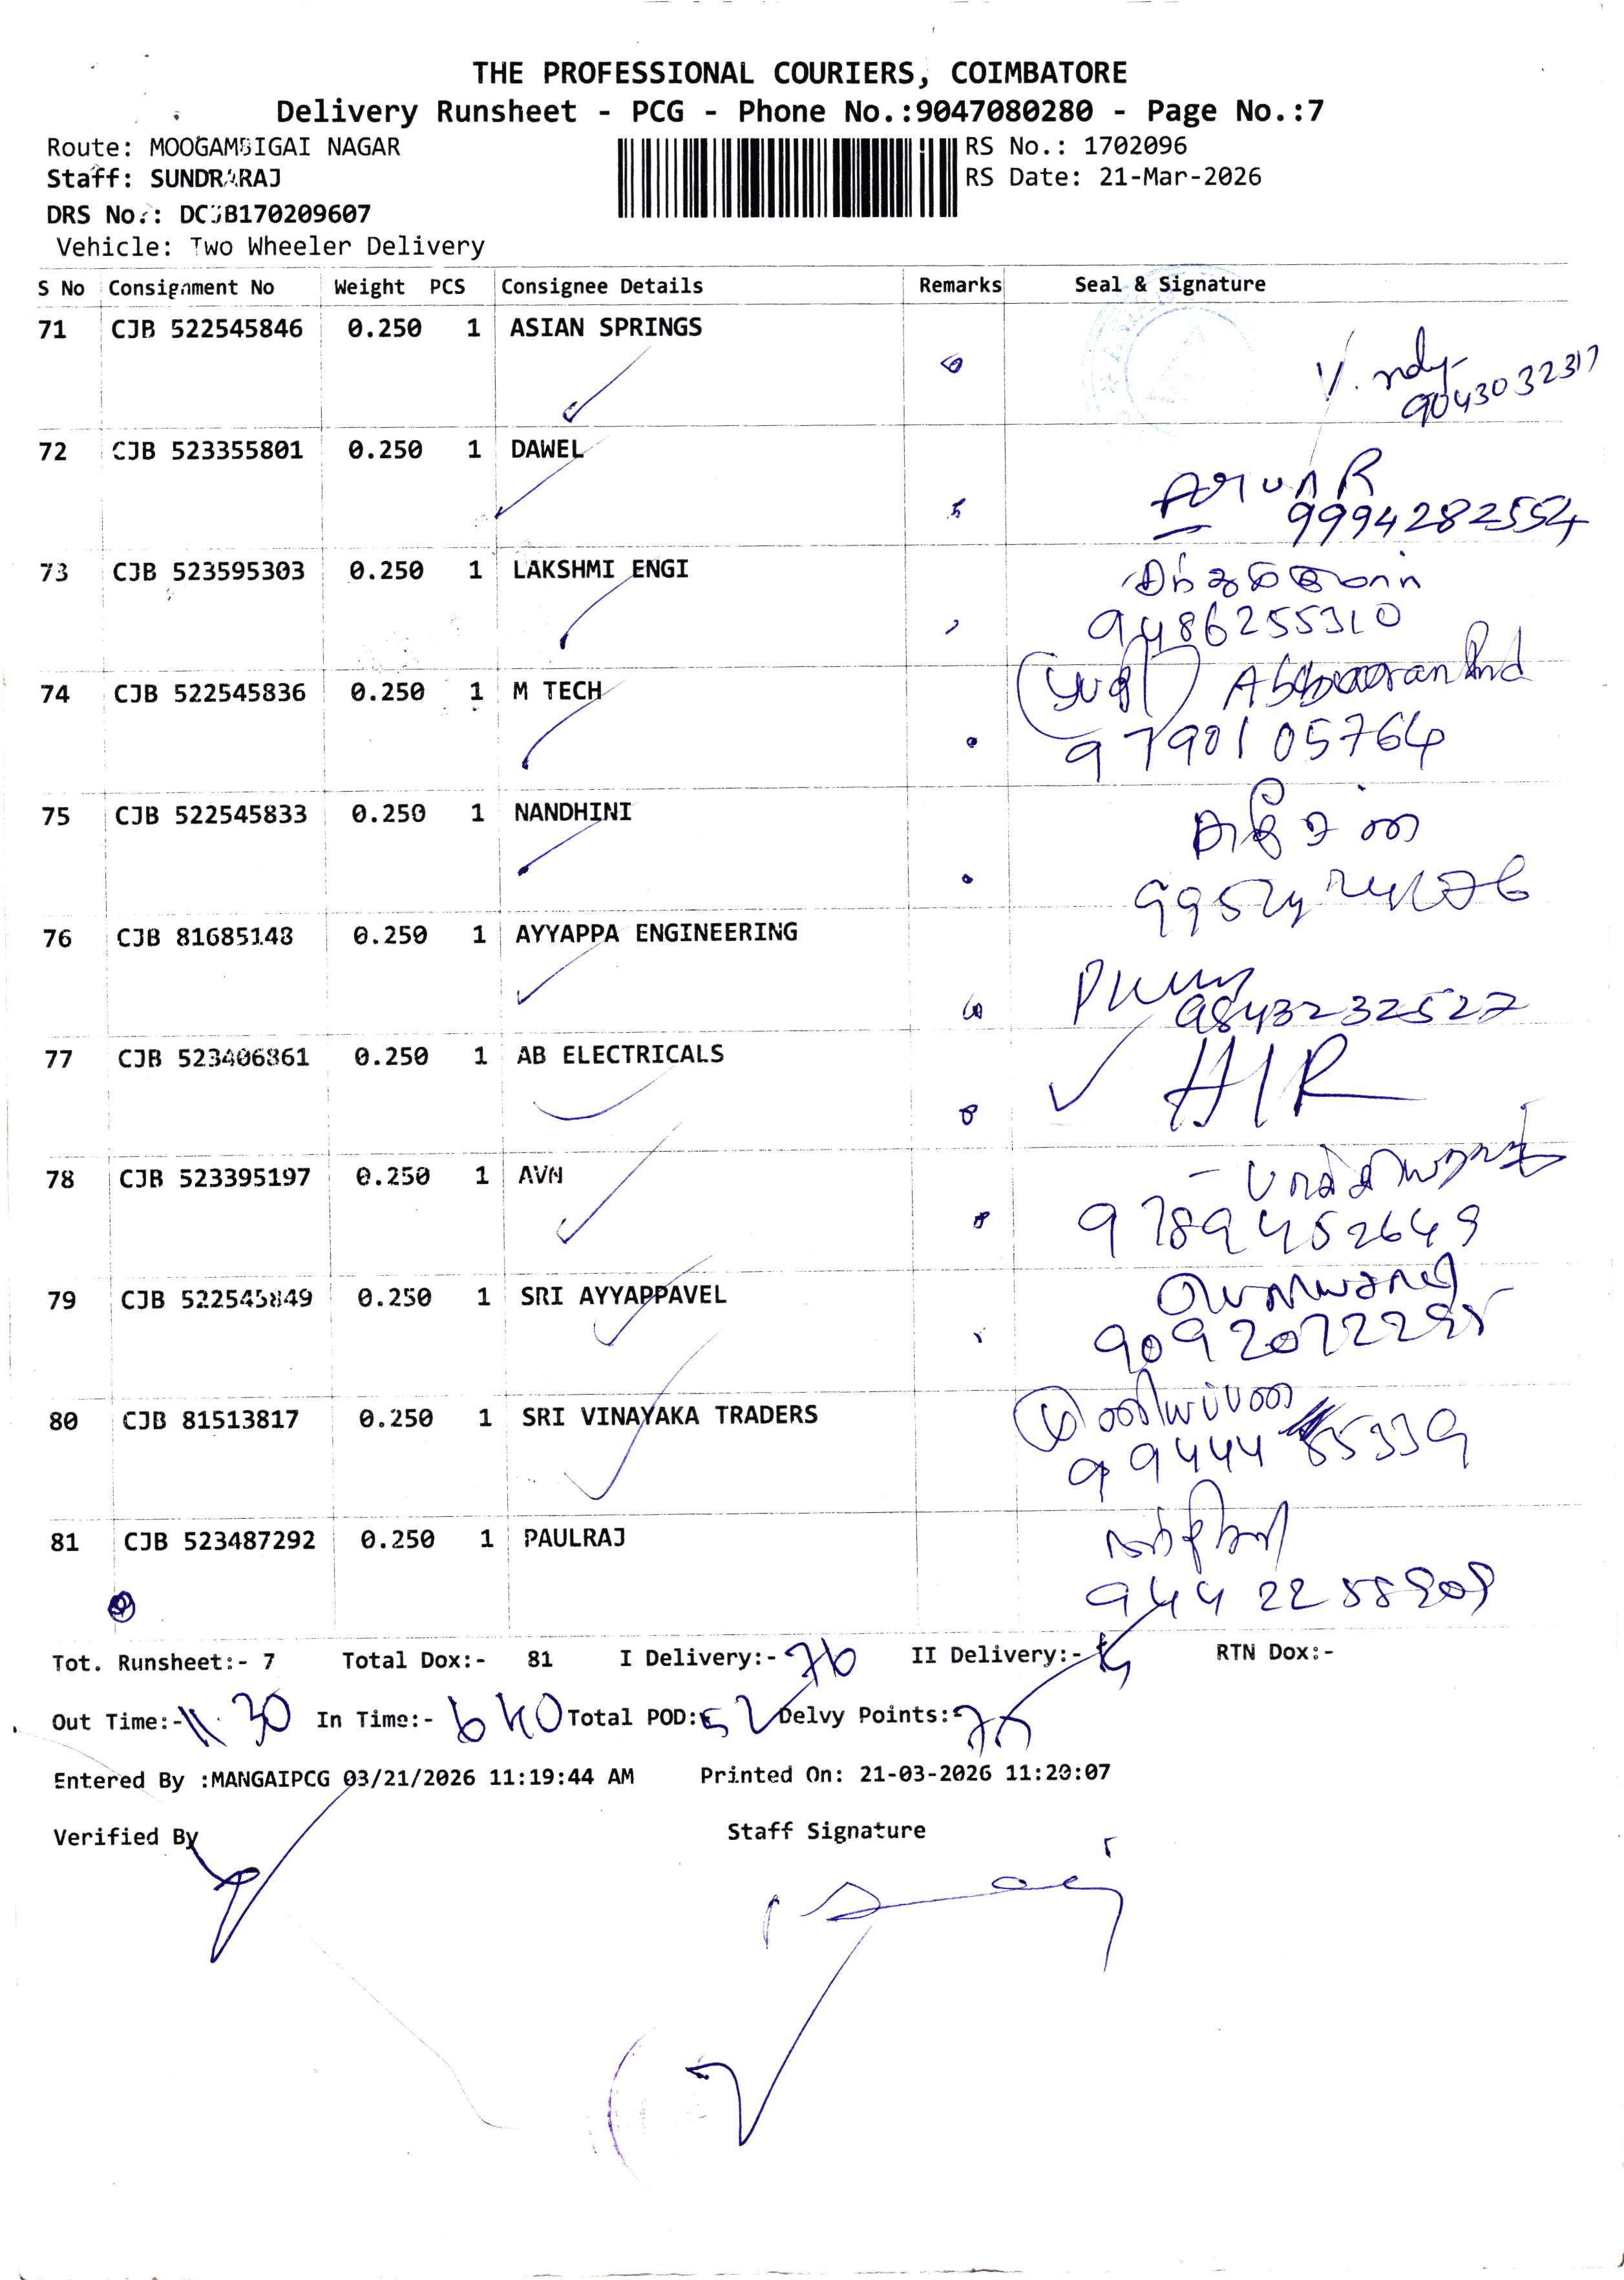 THE PROFESSIONAL COURIERS, COIMBATORE
Delivery Runsheet - PCG - Phone No.:9047080280 - Page No.:7
Route: MOOGAMBIGAI NAGAR
RS No.: 1702096
Staff: SUNDRARAJ
RS Date: 21-Mar-2026
DRS No.: DCJB170209607
Vehicle: Two Wheeler Delivery
S No Consignment No Weight PCS Consignee Details Remarks Seal & Signature
71 CJB 522545846 0.250 1 ASIAN SPRINGS
9043032317
72 CJB 523355801 0.250 1 DAWEL
Arun R
9994282554
73 CJB 523595303 0.250 1 LAKSHMI ENGI
9486255310
74 CJB 522545836 0.250 1 M TECH
9790105764
75 CJB 522545833 0.250 1 NANDHINI
76 CJB 81685148 0.250 1 AYYAPPA ENGINEERING
9843232527
77 CJB 523406861 0.250 1 AB ELECTRICALS
78 CJB 523395197 0.250 1 AVN
9789452649
79 CJB 522545849 0.250 1 SRI AYYAPPAVEL
80 CJB 81513817 0.250 1 SRI VINAYAKA TRADERS
81 CJB 523487292 0.250 1 PAULRAJ
Tot. Runsheet:- 7 Total Dox:- 81 I Delivery:- 76 II Delivery:- RTN Dox:-
Out Time:- 11.30 In Time:- 6 40 Total POD: 52 Delvy Points:-
Entered By :MANGAIPCG 03/21/2026 11:19:44 AM Printed On: 21-03-2026 11:20:07
Verified By Staff Signature